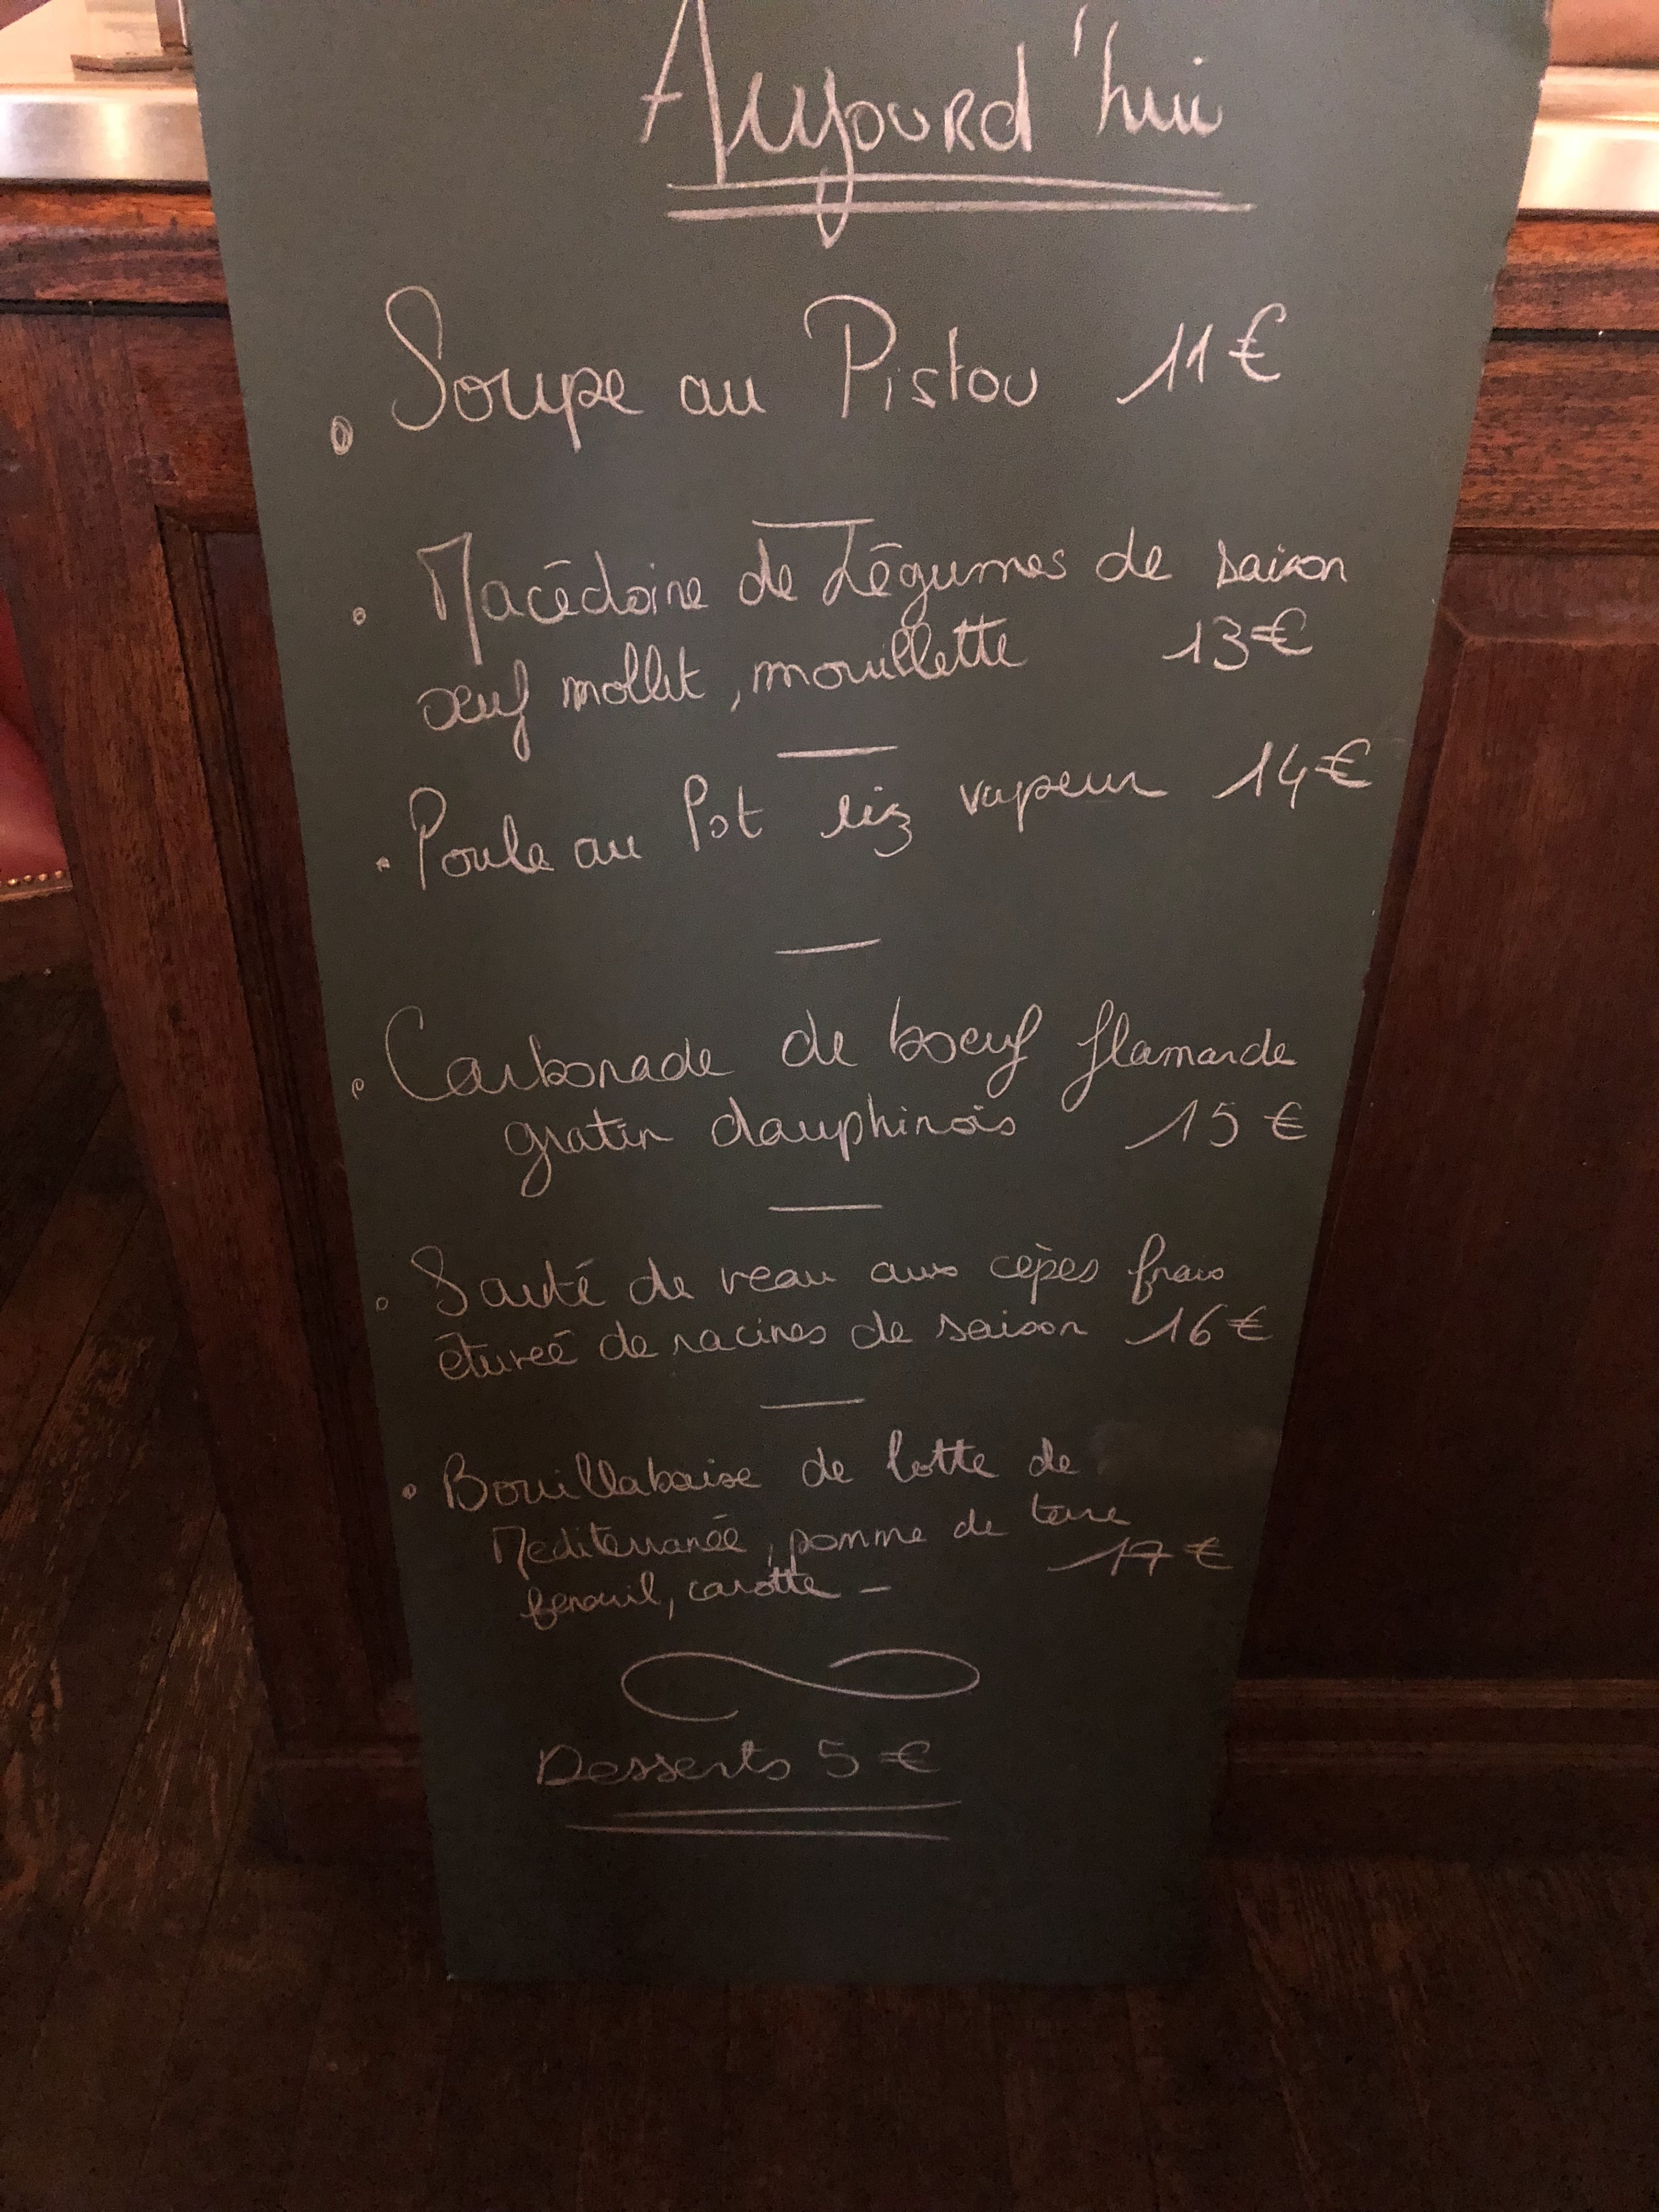 Aujourd'hui
Soupe au Pistou 11€
Macédoine de Légumes de saison
œuf mollet, mouillette 13€
Poule au Pot riz vapeur 14€
Carbonade de boeuf flamande
gratin dauphinois 15€
Sauté de veau aux cèpes frais
étuveé de racines de saison 16€
Bouillabaise de lotte de
Mediterranée, pomme de terre
fenouil, carotte – 17€
Desserts 5€